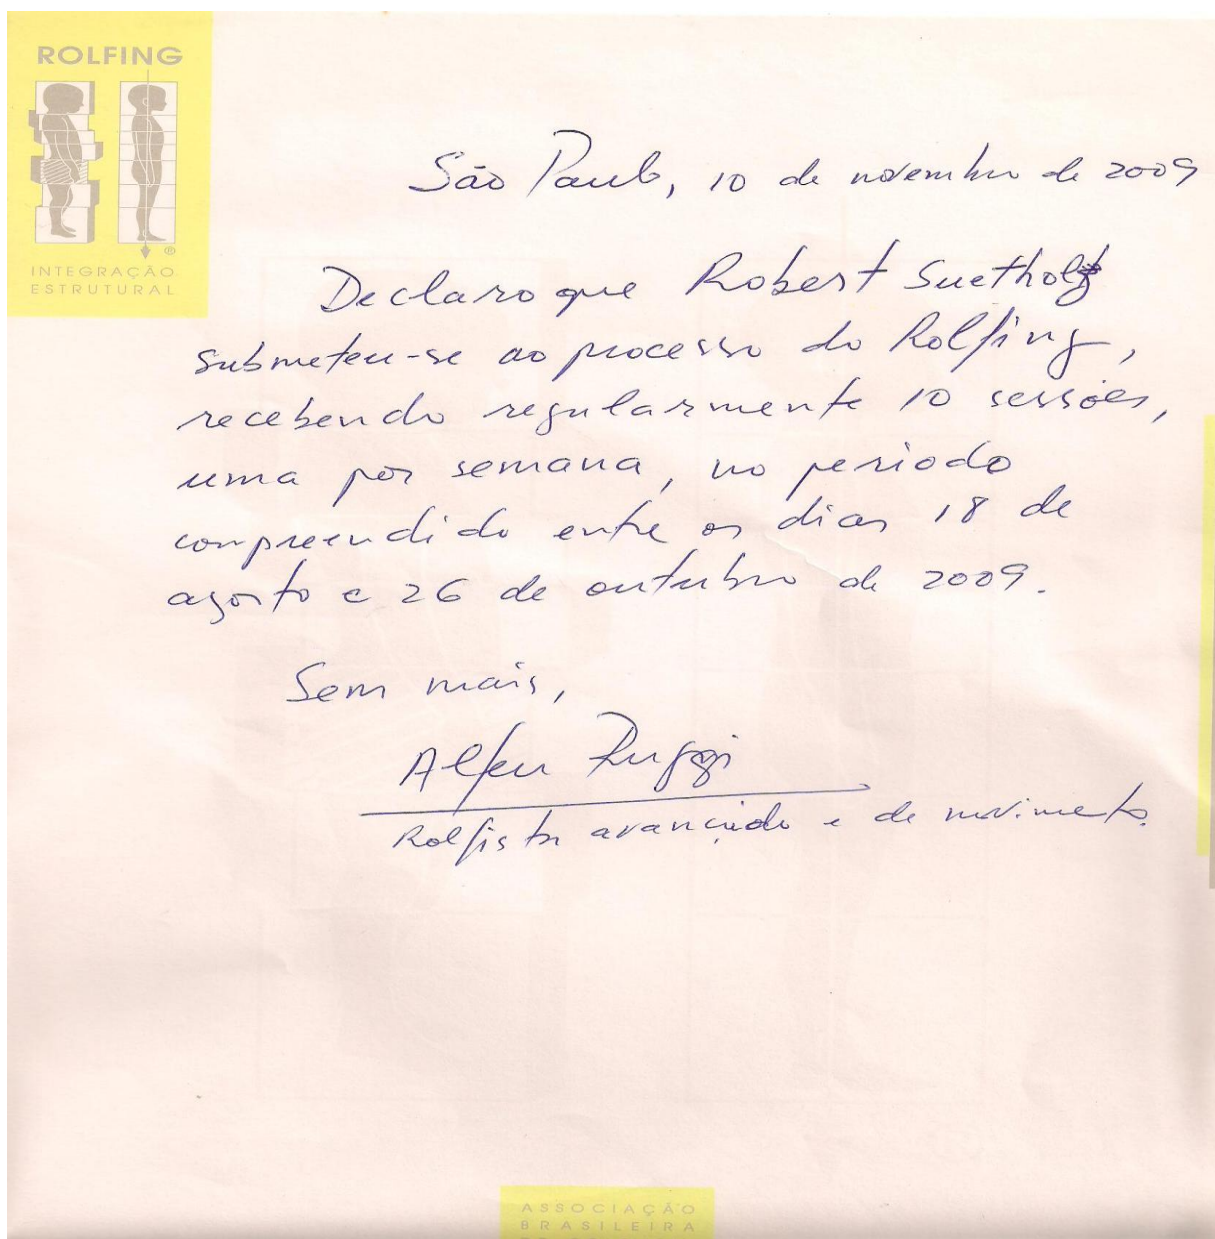 ROLFING
®
INTEGRAÇÃO
ESTRUTURAL
São Paulo, 10 de novembro de 2009
Declaro que Robert Suetholz
submeteu-se ao processo do Rolfing,
recebendo regularmente 10 sessões,
uma por semana, no periodo
conpreendido entre os dias 18 de
agosto e 26 de outubro de 2009.
Sem mais,
Alfeu Ruggi
Rolfista avançado e de movimento.
ASSOCIAÇÃO
BRASILEIRA